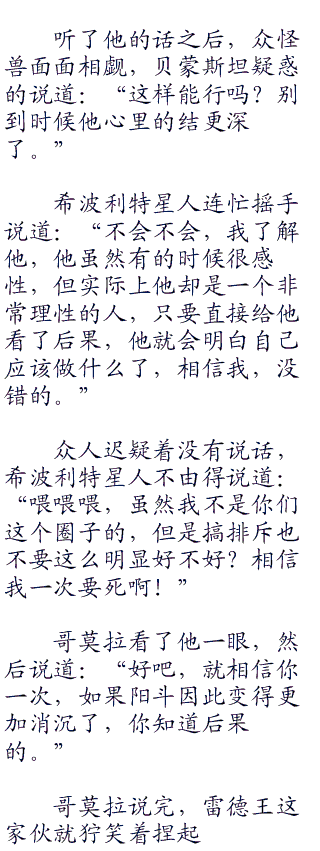 听了他的话之后，众怪
兽面面相觑，贝蒙斯坦疑惑
的说道：“这样能行吗？别
到时候他心里的结更深
了。”
希波利特星人连忙摇手
说道：“不会不会，我了解
他，他虽然有的时候很感
性，但实际上他却是一个非
常理性的人，只要直接给他
看了后果，他就会明白自己
应该做什么了，相信我，没
错的。”
众人迟疑着没有说话，
希波利特星人不由得说道：
“喂喂喂，虽然我不是你们
这个圈子的，但是搞排斥也
不要这么明显好不好？相信
我一次要死啊！”
哥莫拉看了他一眼，然
后说道：“好吧，就相信你
一次，如果阳斗因此变得更
加消沉了，你知道后果
的。”
哥莫拉说完，雷德王这
家伙就狞笑着捏起